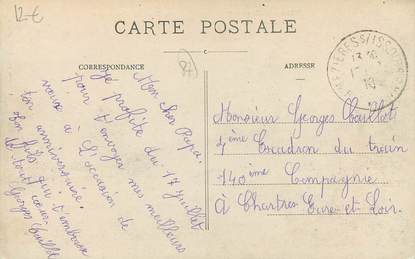 12-€
CARTE POSTALE
CORRESPONDANCE
ADRESSE
84
Mon cher Papa.
Je profite du 17 juillet
pour t'envoyer mes meilleurs
vœux à l'occasion de
ton anniversaire.
Ton fils qui t'embrasse
de tout cœur.
Georges
Monsieur Georges
4ème Escadron du train
140ème Compagnie
À Chartres Eure-et-Loir.